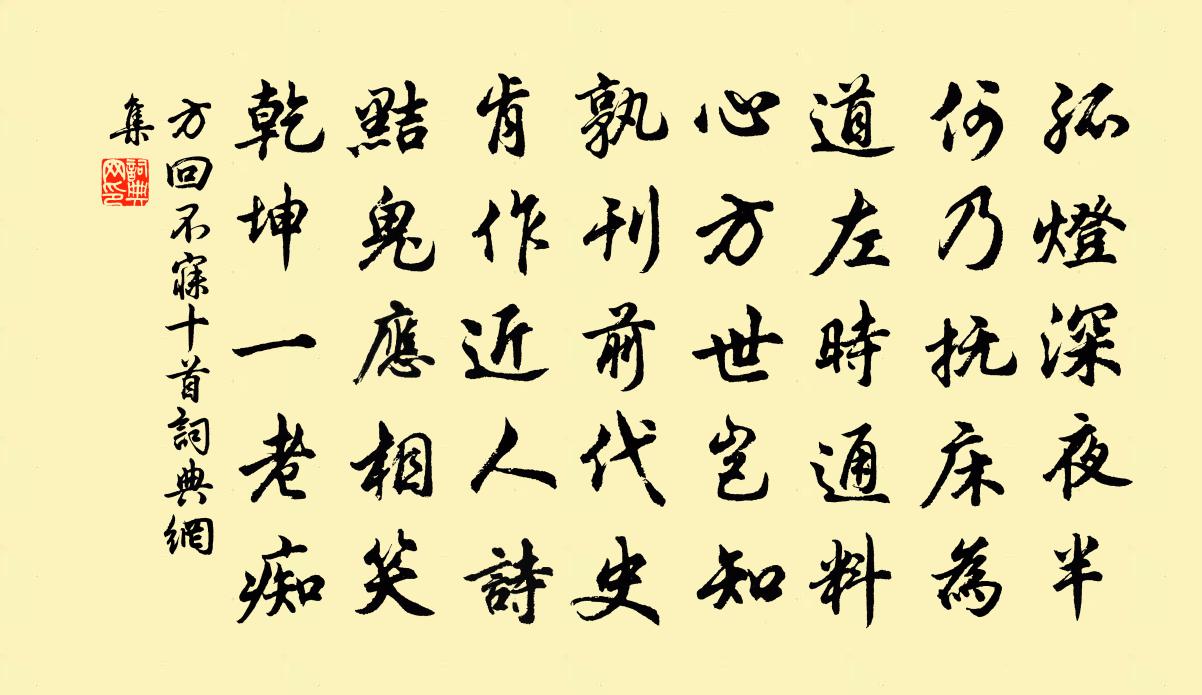 孤燈深夜半
何乃抚床為
道左時通料
心方世岂知
孰刊前代史
肯作近人詩
黠鬼應相笑
乾坤一老痴
方回不寐十首詞典網
集
詞典網印